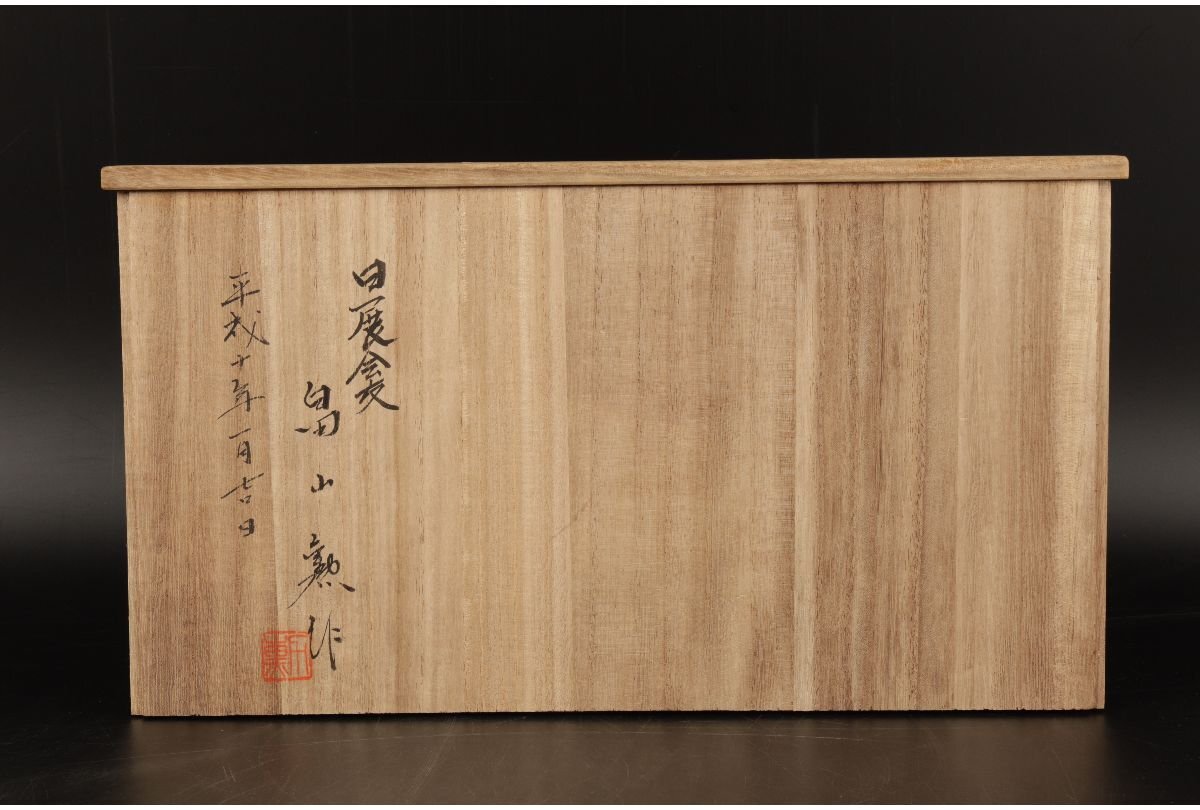 日展会友
畠山勲作
平成十年一月吉日